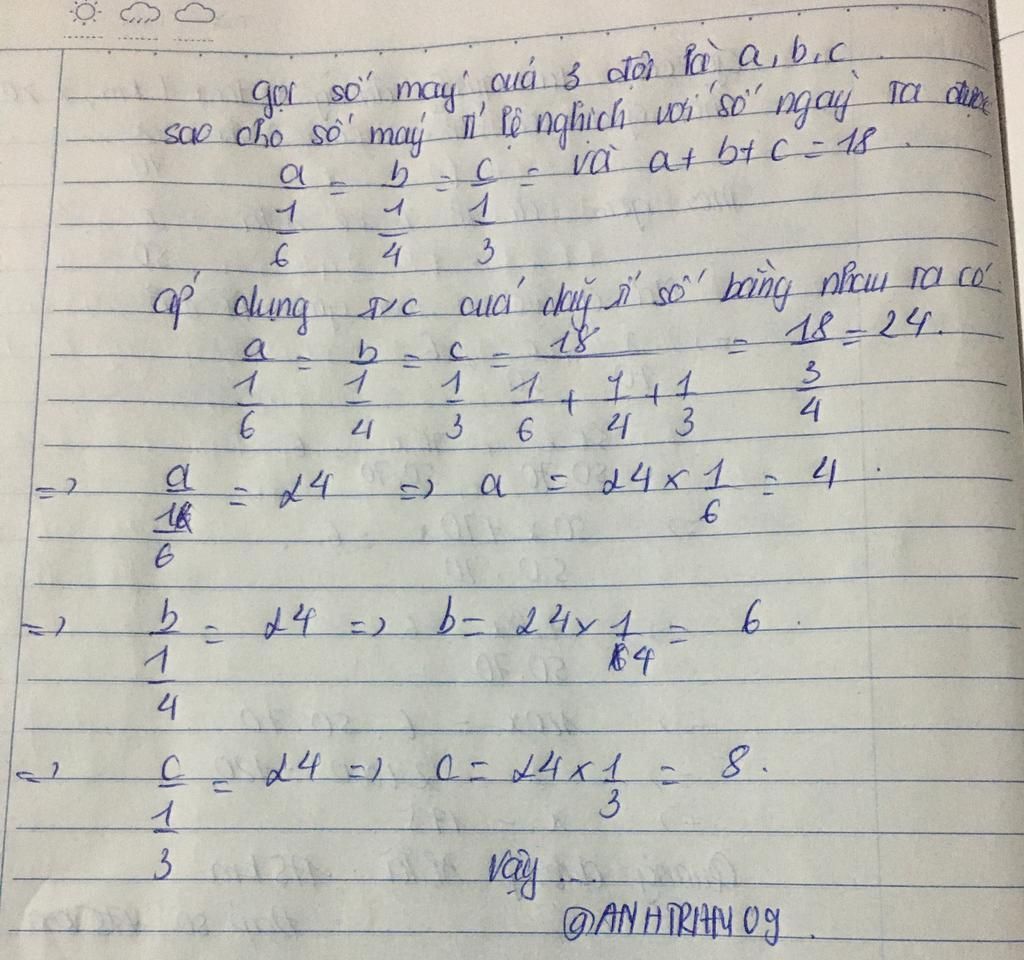 gọi số máy cuả 3 đội là a, b, c
sao cho số máy tỉ lệ nghịch với số ngày ta được
a/(1/6) = b/(1/4) = c/(1/3) = và a + b + c = 18.
áp dụng t/c cuả dãy tỉ số bằng nhau ta có
a/(1/6) = b/(1/4) = c/(1/3) = 18/(1/6 + 1/4 + 1/3) = 18/(3/4) = 24.
=> a/(1/6) = 24 => a = 24 x 1/6 = 4.
=> b/(1/4) = 24 => b = 24 x 1/4 = 6.
=> c/(1/3) = 24 => c = 24 x 1/3 = 8.
Vậy...
@ANHTRAN09.